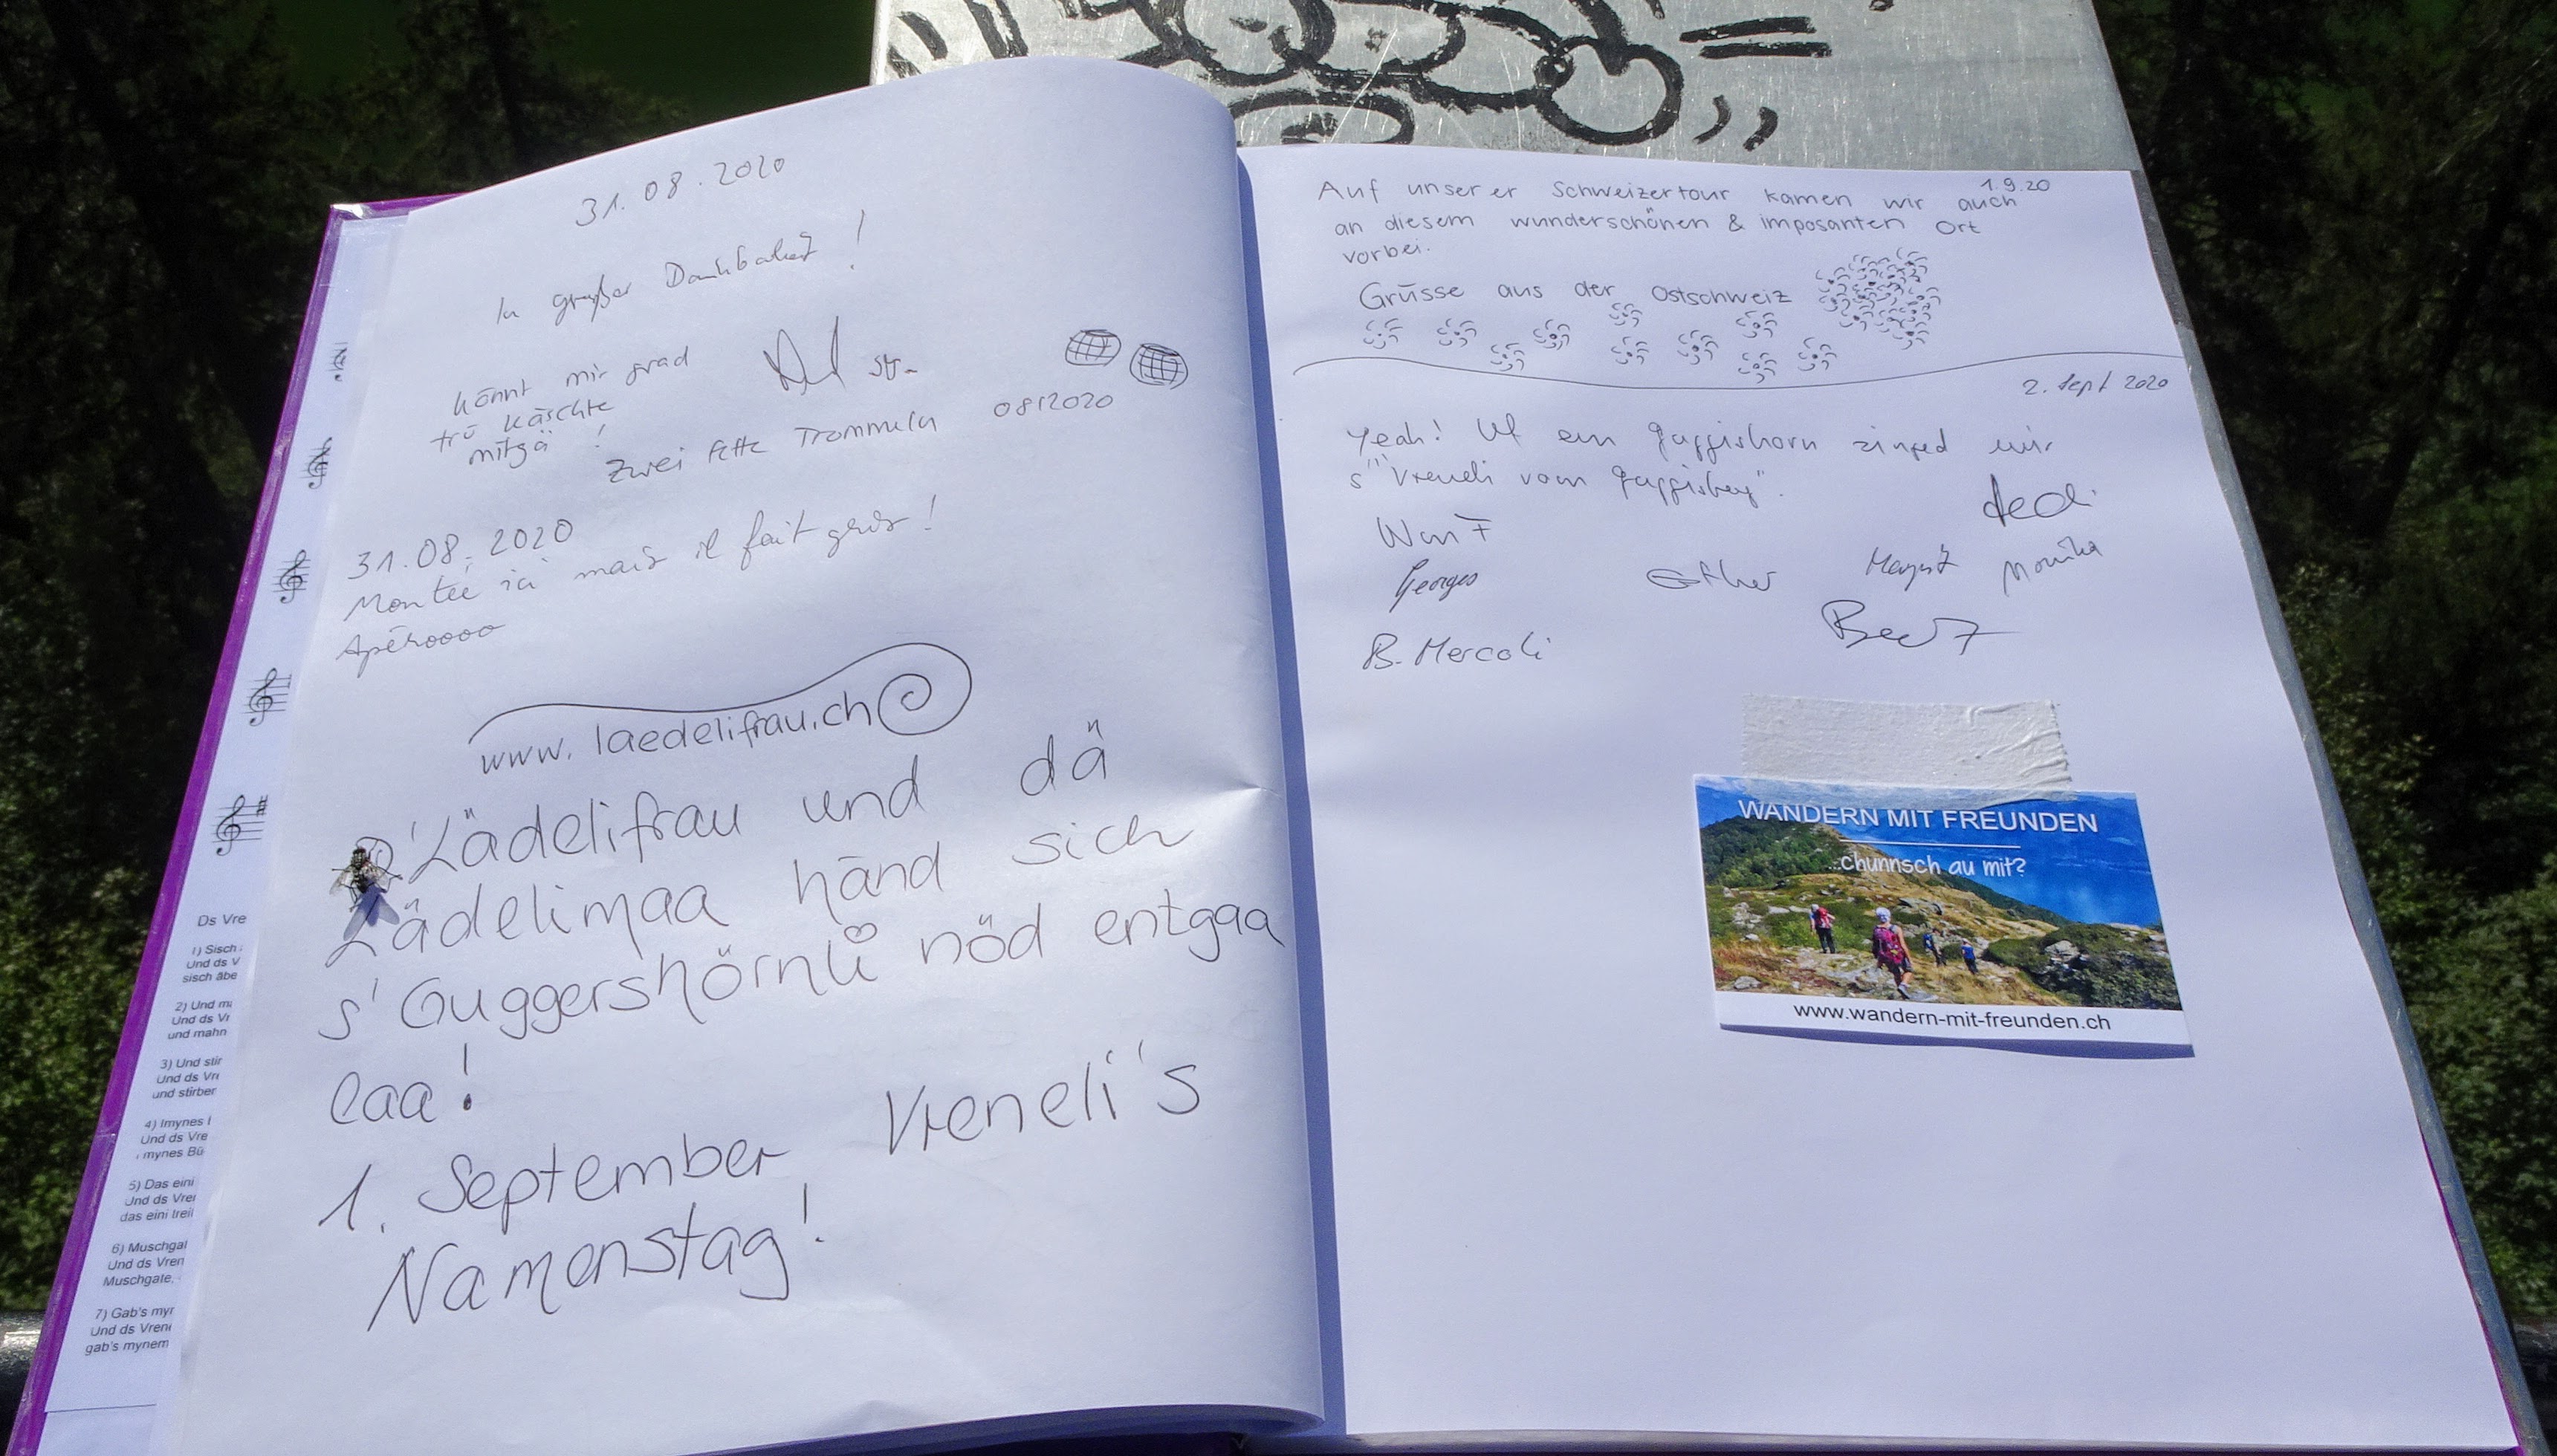 31.08.2020
In großer Dankbarkeit!
könnt mir grad
trü käschte
mitgä!
Zwei fette Trommeln 08/2020
31.08.2020
Montée ici mais il fait gris!
Apéroooo
www.laedelifrau.ch
D'Lädelifrau und dä
Lädelimaa händ sich
s'Guggershörnli nöd entgaa
laa!
1. September Vreneli's
Namenstag!
Ds Vre
1) Sisch
Und ds V
sisch äbe
2) Und ma
Und ds Vr
und mahn
3) Und stir
Und ds Vre
und stirber
4) Imynes
Und ds Vre
mynes Bü
5) Das eini
Und ds Vrei
das eini treil
6) Muschgal
Und ds Vren
Muschgate,
7) Gab's myr
Und ds Vrene
gab's mynem
1.9.20
Auf unserer Schweizertour kamen wir auch
an diesem wunderschönen & imposanten Ort
vorbei.
Grüsse aus der Ostschweiz
2. Sept 2020
Yeah! Uf em Guggishorn singed mir
s'"Vreneli vom Guggisberg".
Hedi
Georges Esther Margrit Monika
B. Mercoli Beat
WANDERN MIT FREUNDEN
...chunnsch au mit?
www.wandern-mit-freunden.ch